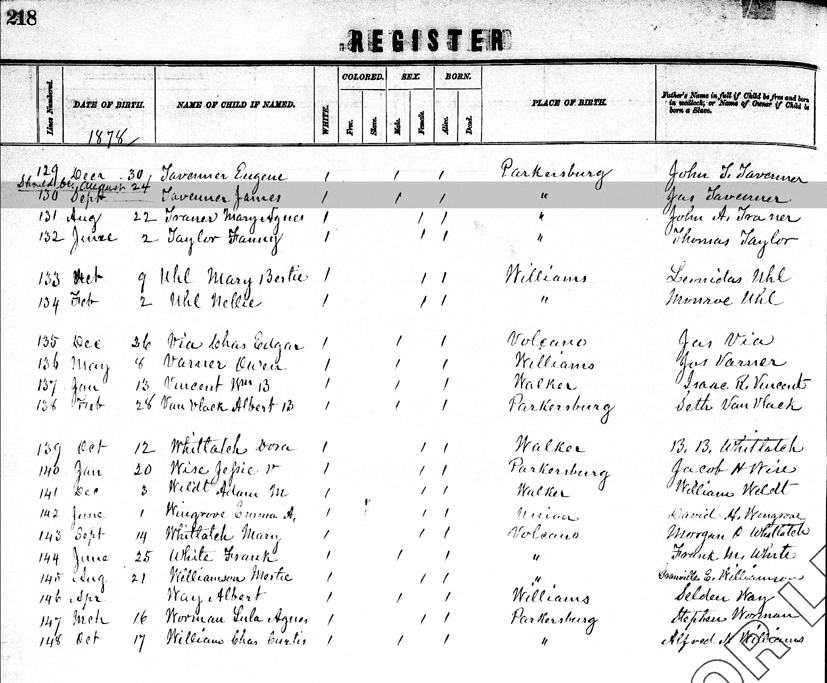 218
REGISTER
Lines Numbered. DATE OF BIRTH. NAME OF CHILD IF NAMED. WHITE. COLORED. Free. Slave. SEX. Male. Female. BORN. Alive. Dead. PLACE OF BIRTH. Father's Name in full if Child be free and born in wedlock, or Name of Owner if Child be born a Slave.
1878
129 Decr 30 Tavenner Eugene / / / Parkersburg John T. Tavenner
Should be August 24
130 Sept Tavenner James / / / " Jas Tavenner
131 Aug 22 Traner Mary Agnes / / / " John A. Traner
132 June 2 Taylor Fanny / / / " Thomas Taylor
133 Oct 9 Uhl Mary Bertie / / / Williams Leonidas Uhl
134 Feb 2 Uhl Nellie / / / " Monroe Uhl
135 Dec 26 Via Chas Edgar / / / Volcano Jas Via
136 May 8 Varner Owen / / / Williams Jos Varner
137 Jan 13 Vincent Wm B / / / Walker Isaac R. Vincent
138 Feb 28 Van Vlack Albert B / / / Parkersburg Seth Van Vlack
139 Oct 12 Whittatch Dora / / / Walker B. B. Whittatch
140 Jan 20 Wise Jessie V / / / Parkersburg Jacob H Wise
141 Dec 3 Wildt Adam M / / / Walker William Wildt
142 June 1 Wingrove Emma A, / / / Union David H. Wingrove
143 Sept 14 Whittatch Mary / / / Volcano Morgan D Whittatch
144 June 25 White Frank / / / " Frank M. White
145 Aug 21 Williamson Mertie / / / " Granville E. Williamson
146 Apr Way Albert / / / Williams Selden Way
147 Mch 16 Worman Lula Agnes / / / Parkersburg Stephen Worman
148 Oct 17 William Chas Curtis / / / " Alfred N Williams
OR L